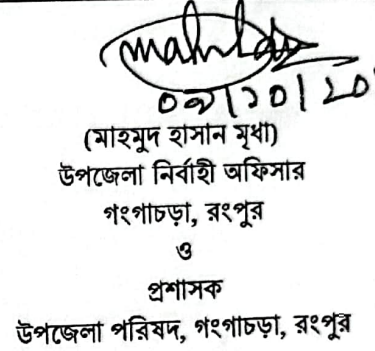 (মাহমুদ হাসান মৃধা)
উপজেলা নির্বাহী অফিসার
গংগাচড়া, রংপুর
ও
প্রশাসক
উপজেলা পরিষদ, গংগাচড়া, রংপুর